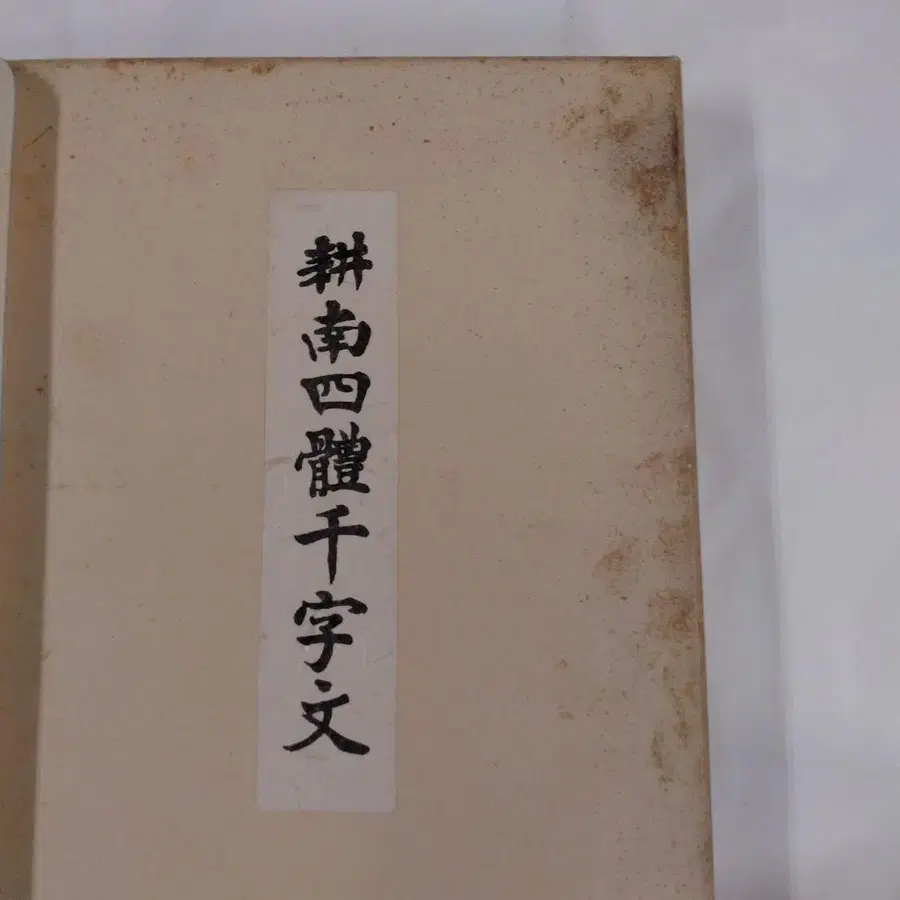 耕南四體千字文